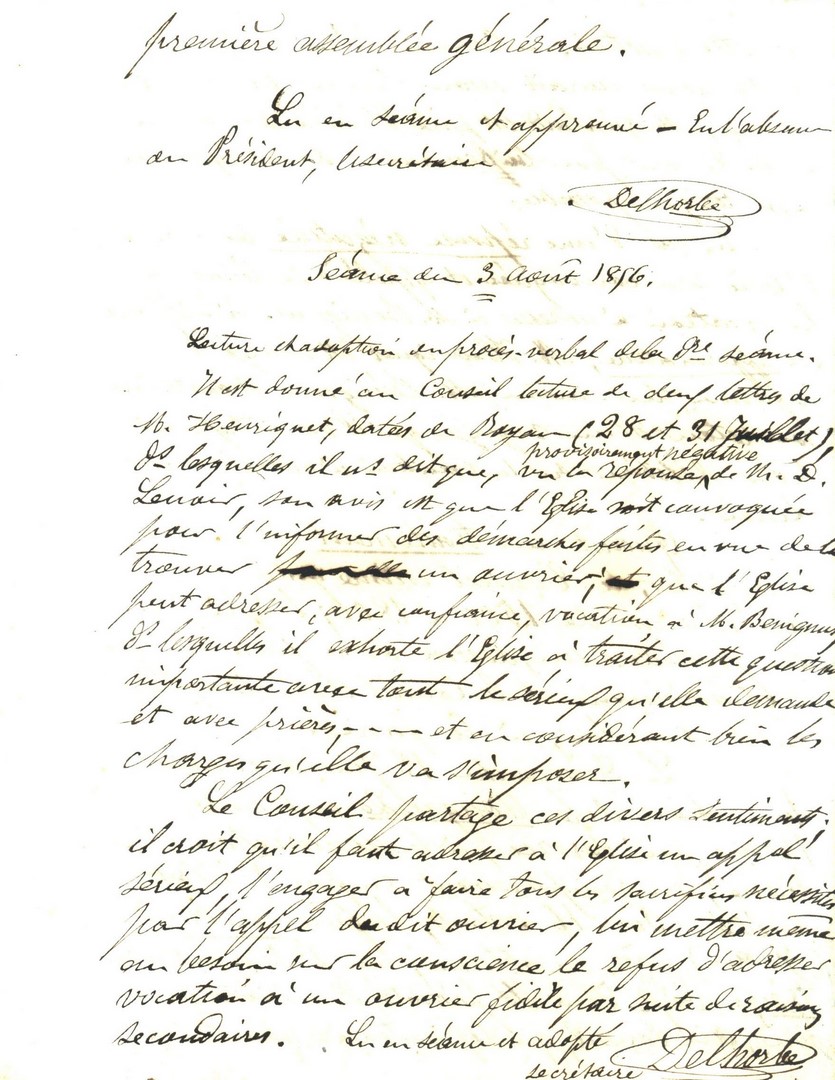 première assemblée générale.
Lu en séance et approuvé – En l'absence
du Président, le secrétaire
Delhorbe
Séance du 3 Août 1856.
Lecture et adoption du procès-verbal de la dre séance.
Il est donné au Conseil lecture de deux lettres de
M. Henriquet, datées de Royan (28 et 31 Juillet),
provisoirement négative
ds lesquelles il ns dit que, vu la réponse de M. D.
Lenoir, son avis est que l'Eglise soit convoquée
pour l'informer des démarches faites en vue de lui
trouver un ouvrier; et que l'Eglise
peut adresser, avec confiance, vocation à M. Benignus
ds lesquelles il exhorte l'Eglise à traiter cette question
importante avec tout le sérieux qu'elle demande
et avec prières, - - - et en considérant bien les
charges qu'elle va s'imposer.
Le Conseil partage ces divers sentiments;
il croit qu'il faut adresser à l'Eglise un appel
sérieux, l'engager à faire tous les sacrifices nécessités
par l'appel dudit ouvrier, lui mettre même
au besoin sur la conscience le refus d'adresser
vocation à un ouvrier fidèle par suite de raisons
secondaires. Lu en séance et adopté
secrétaire Delhorbe